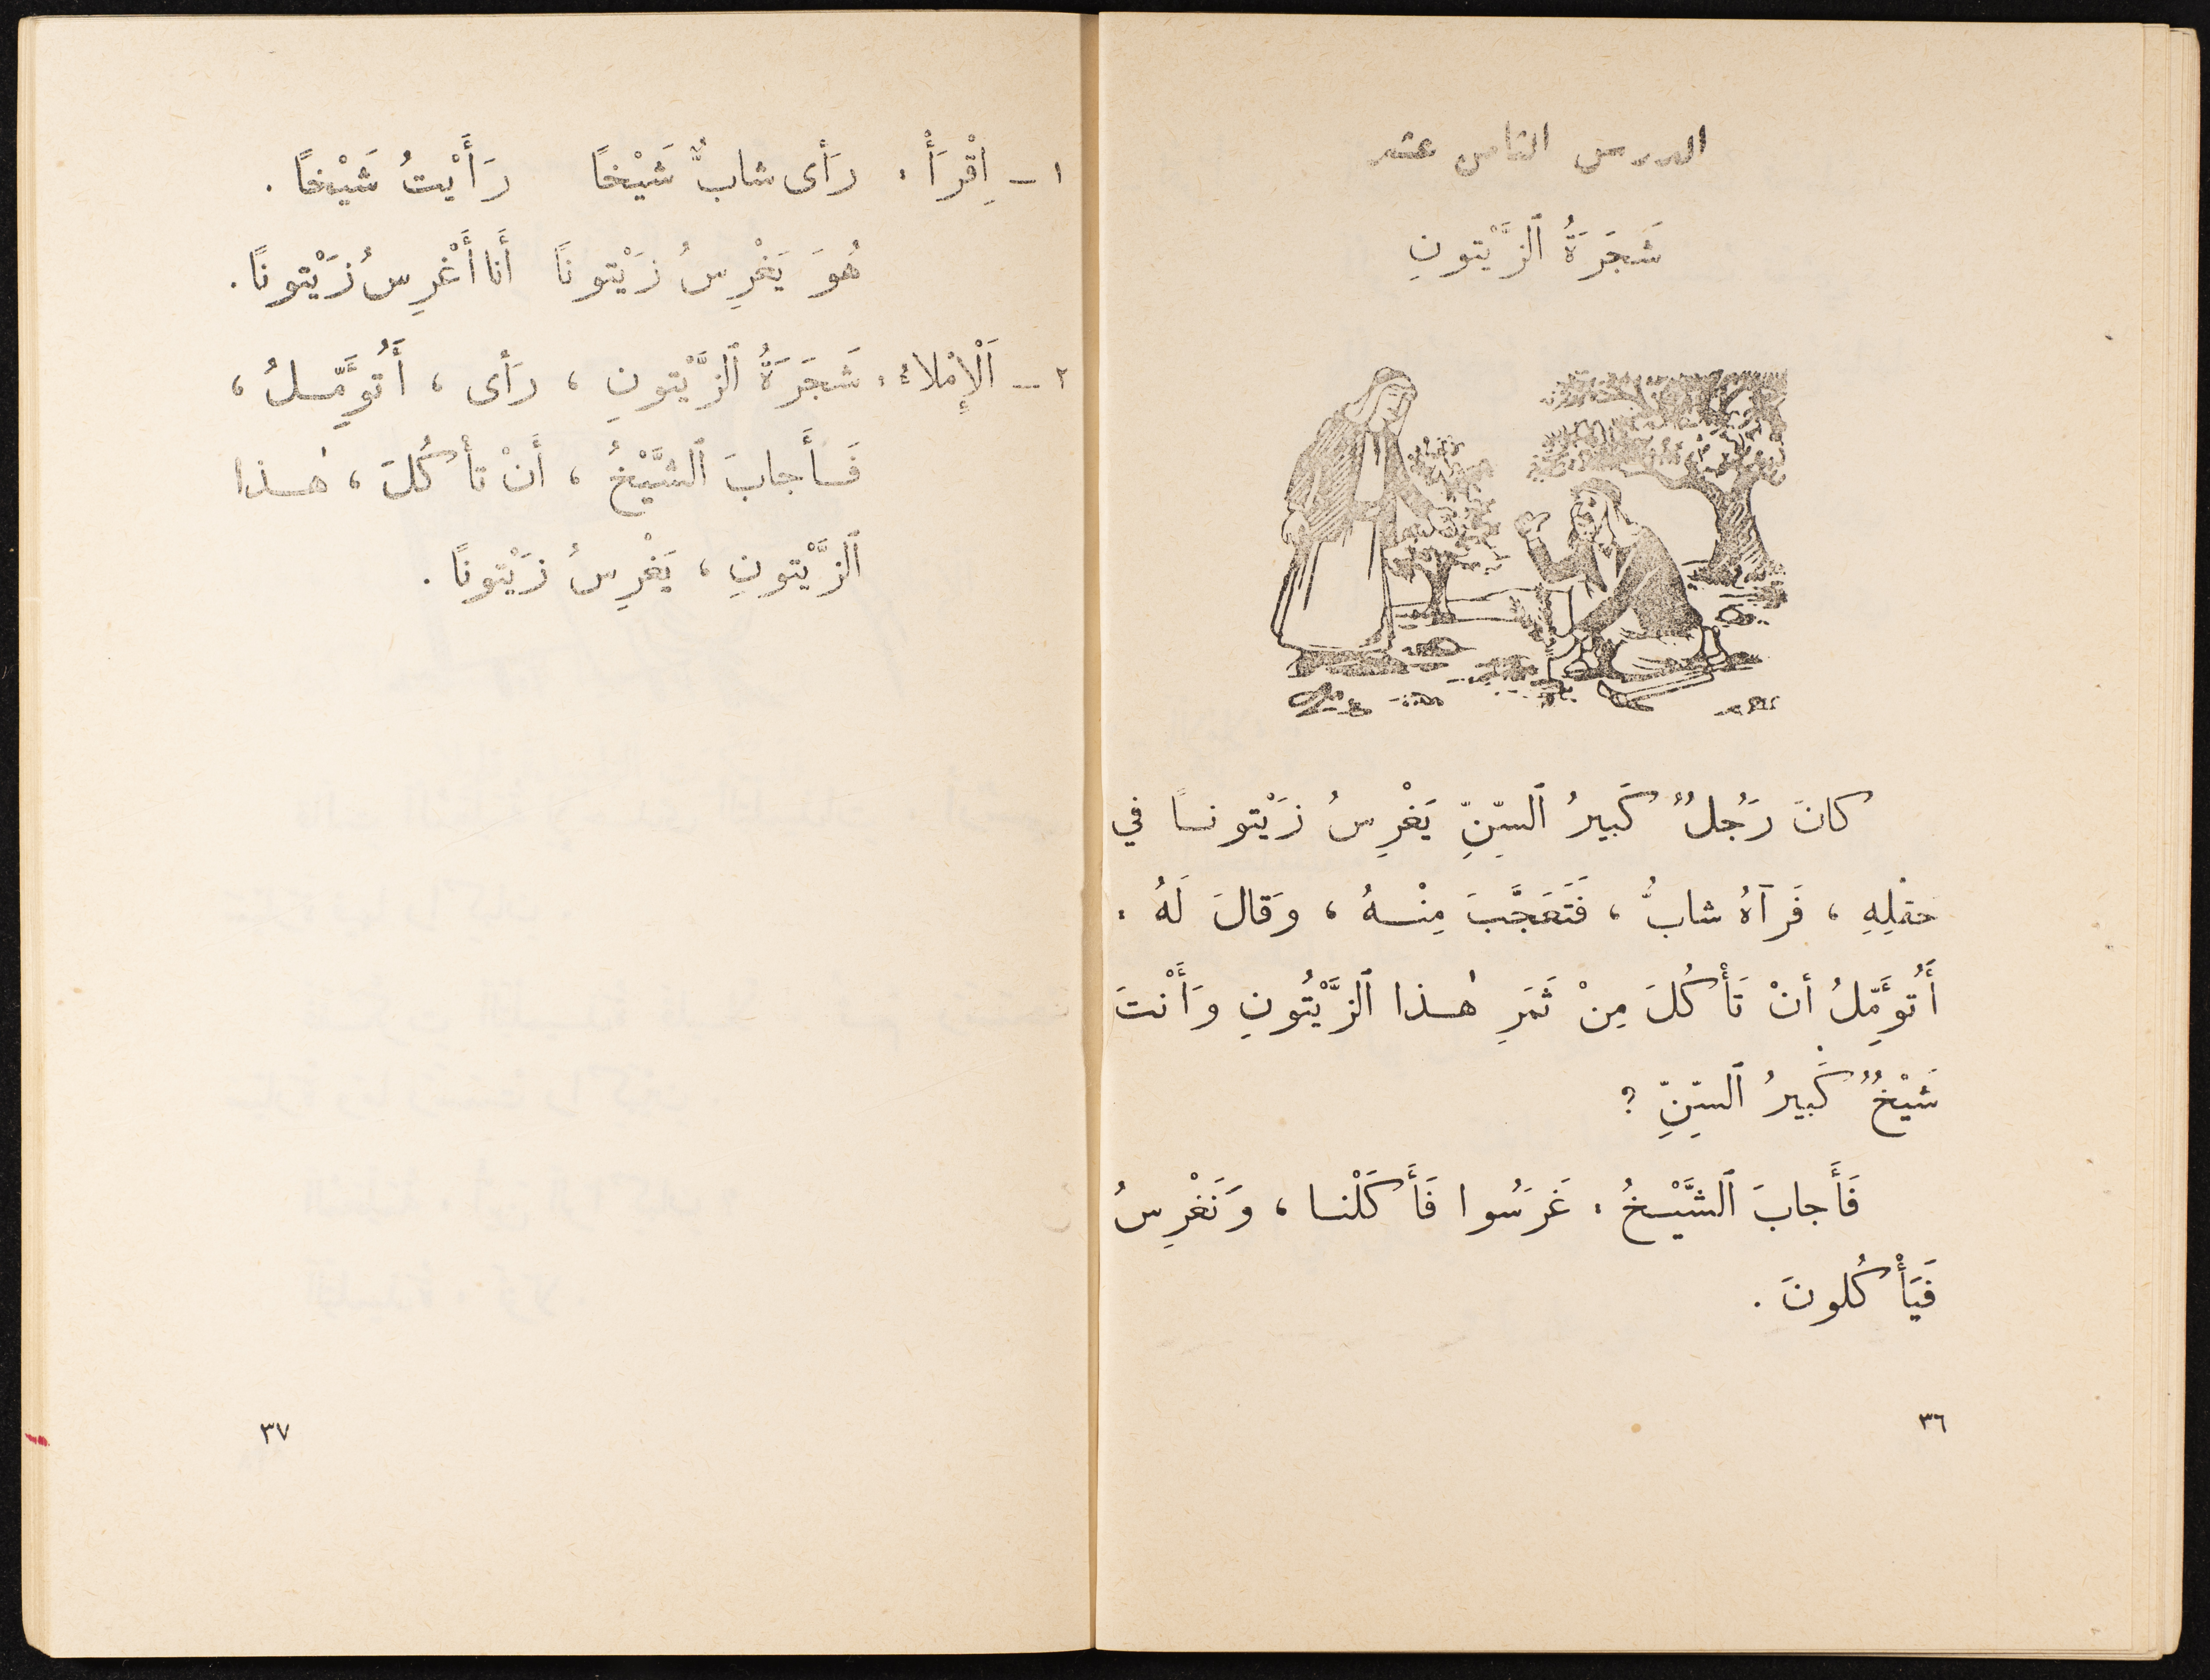 الدرس الثامن عشر
شَجَرَةُ ٱلزَّيْتونِ
كانَ رَجُلٌ كَبيرُ ٱلسِّنِّ يَغْرِسُ زَيْتونًا في
حقلِهِ ، فَرَآهُ شابٌّ ، فَتَعَجَّبَ مِنْهُ ، وَقالَ لَهُ :
أَتُوَمِّلُ أنْ تَأْكُلَ مِنْ ثَمَرِ هٰذا ٱلزَّيْتُونِ وَأَنْتَ
شَيْخٌ كَبيرُ ٱلسِّنِّ ؟
فَأَجابَ ٱلشَّيْخُ : غَرَسُوا فَأَكَلْنا ، وَنَغْرِسُ
فَيَأْكُلونَ .
٣٦
١ – اِقْرَأْ : رَأى شابٌّ شَيْخًا رَأَيْتُ شَيْخًا .
هُوَ يَغْرِسُ زَيْتونًا أَنا أَغْرِسُ زَيْتونًا .
٢ – اَلْإِمْلاءُ : شَجَرَةُ ٱلزَّيْتونِ ، رَأى ، أَتُوَمِّلُ ،
فَأَجابَ ٱلشَّيْخُ ، أَنْ تأْكُلَ ، هٰذا
ٱلزَّيْتونِ ، يَغْرِسُ زَيْتونًا .
٣٧